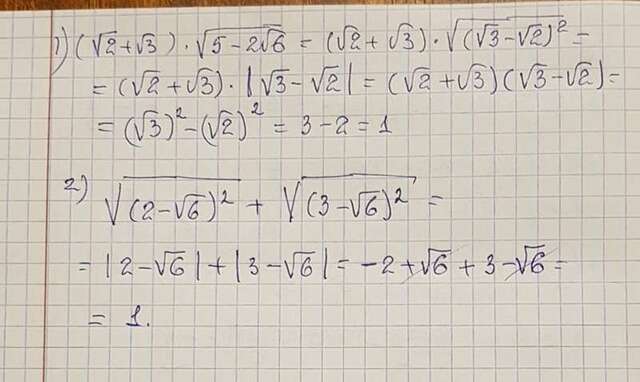 1) (√2+√3) · √(5-2√6) = (√2+√3) · √((√3-√2)²) =
= (√2+√3) · |√3-√2| = (√2+√3)(√3-√2) =
= (√3)² - (√2)² = 3-2 = 1
2) √((2-√6)²) + √((3-√6)²) =
= |2-√6| + |3-√6| = -2+√6+3-√6 =
= 1.